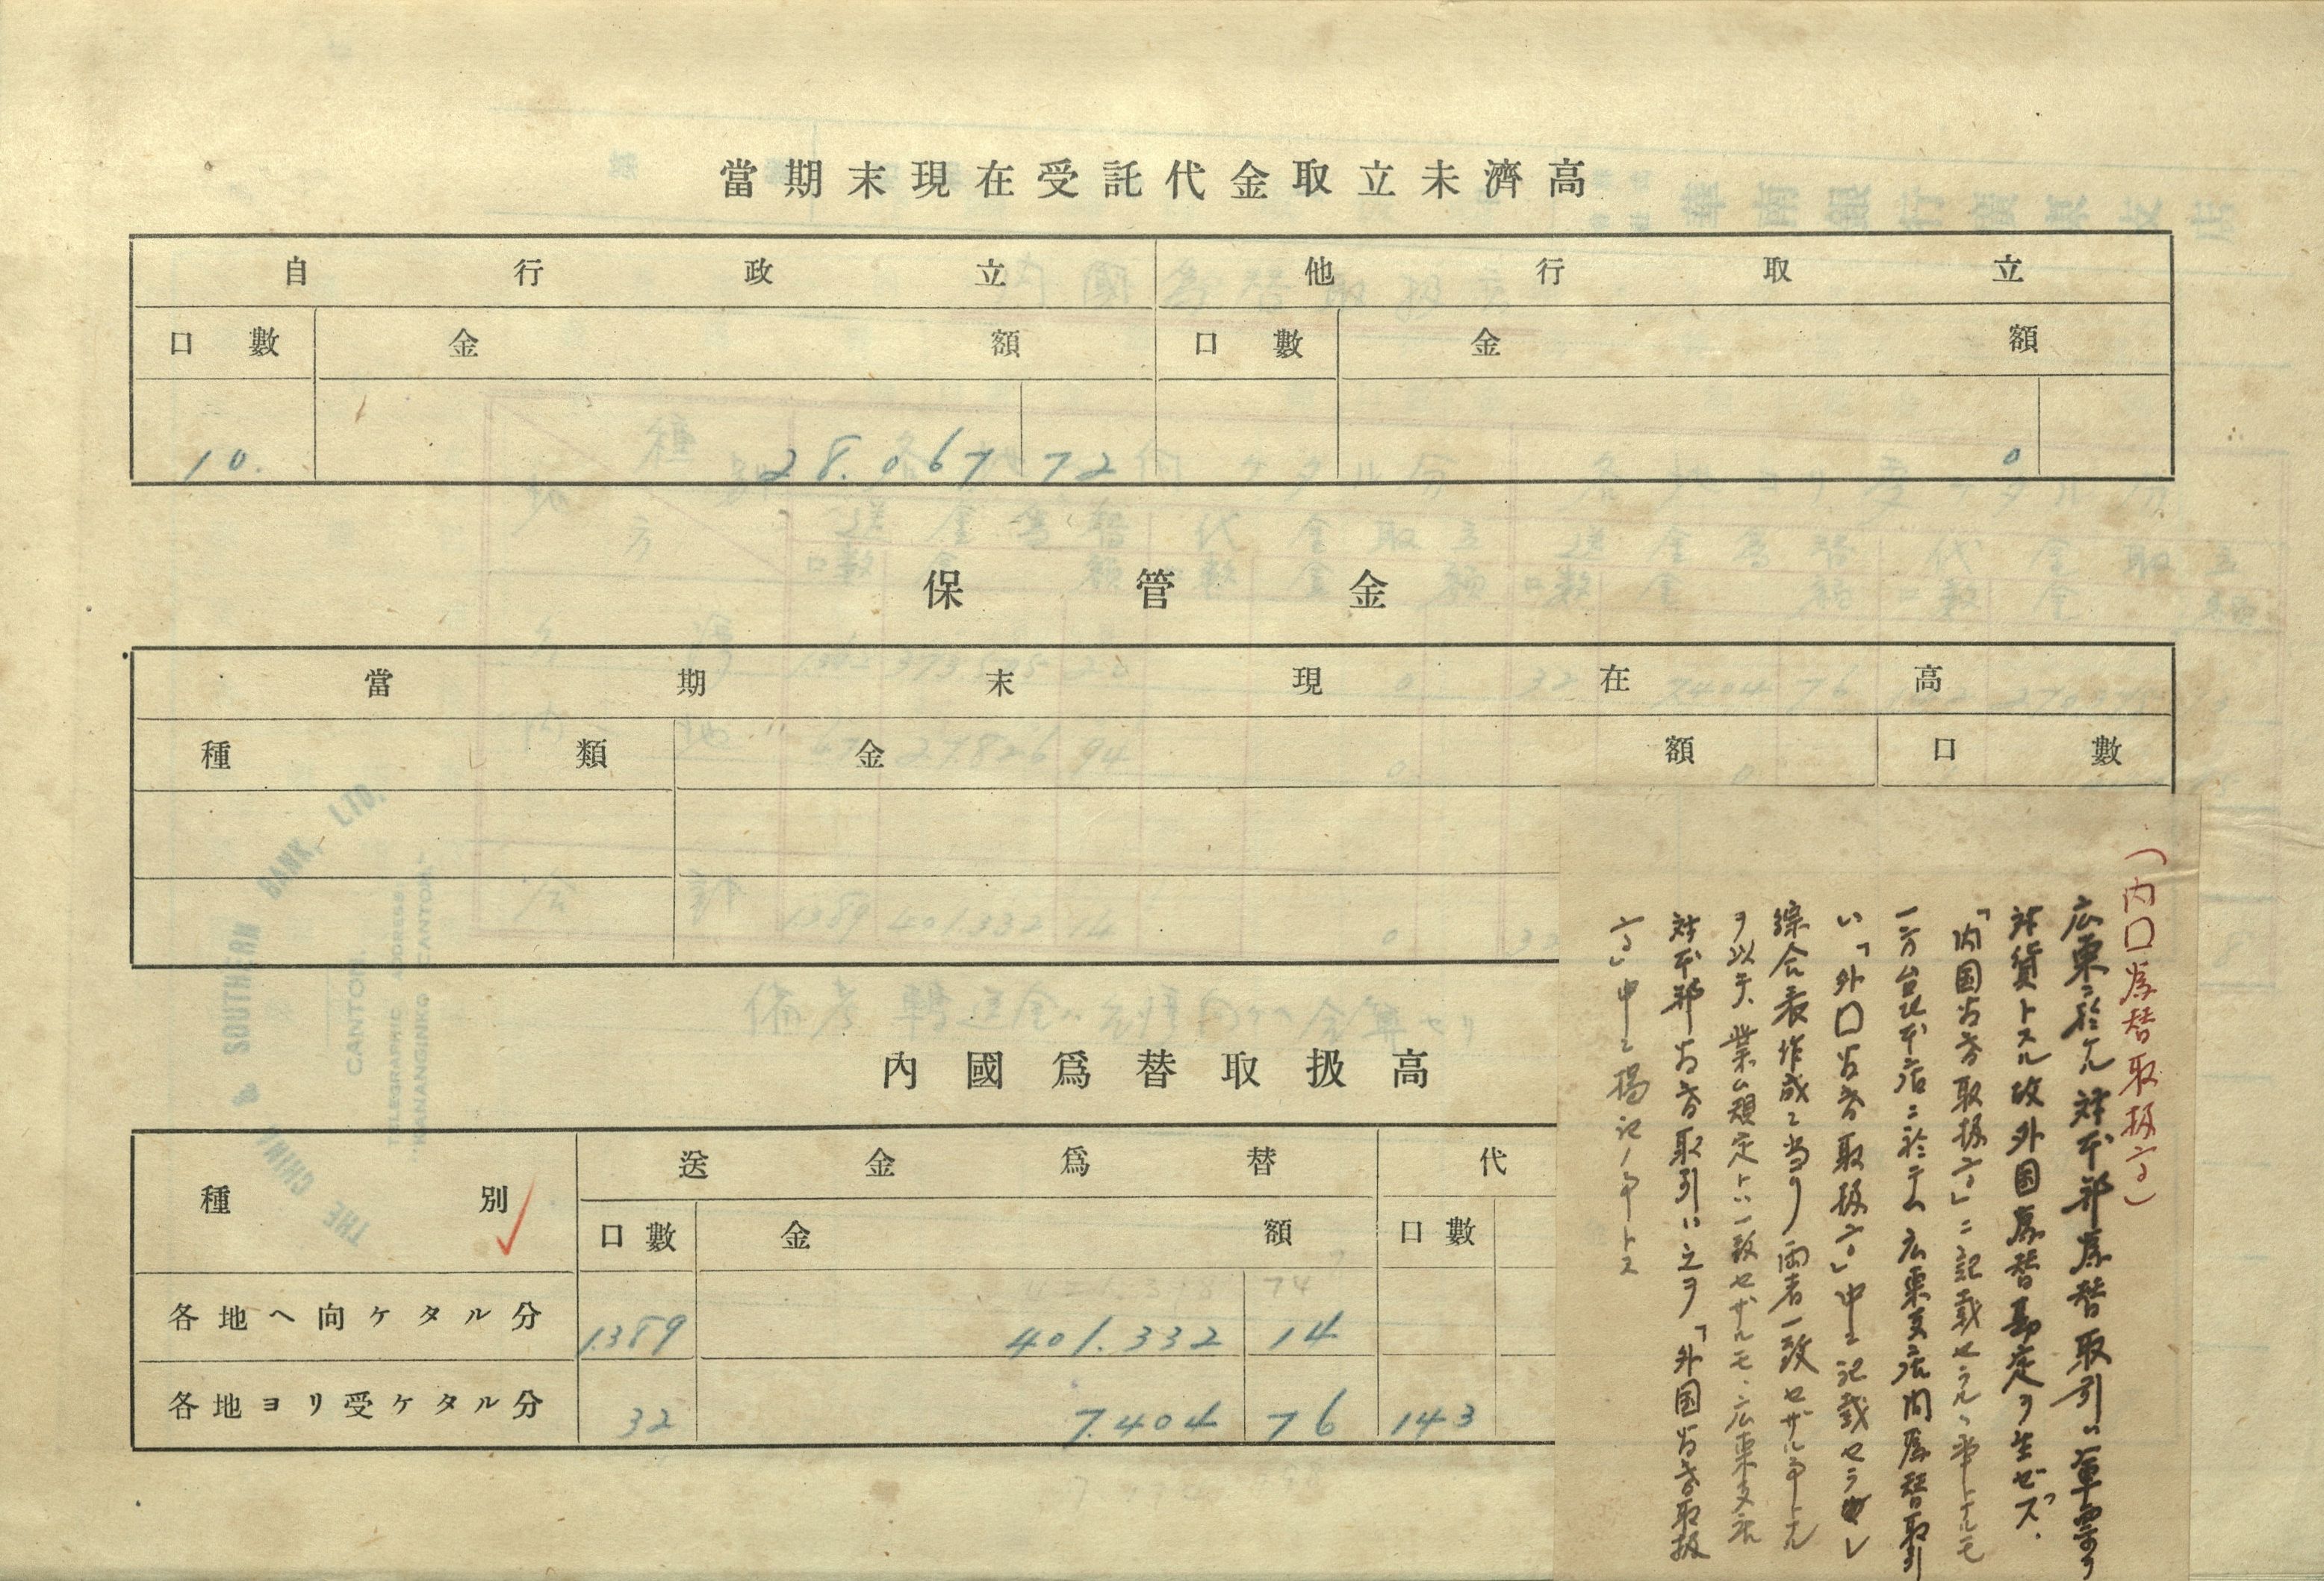 當期末現在受託代金取立未濟高
自行政立 他行取立
口數 金額 口數 金額
10. 28.067 72 0
保管金
當期末現在高
種類 金額 口數
內國爲替取扱高
種別 送金爲替 代
口數 金額 口數
各地ヘ向ケタル分 1.389 401.332 14
各地ヨリ受ケタル分 32 7.404 76 143
(内口為替取扱高)
広東ニ於ケル対本邦為替取引ハ軍票ヲ
対貨トスル故外国為替勘定ヲ生ゼズ、
「内国為替取扱高」ニ記載セラルヽ事トナルモ
一方台北本店ニ於テハ広東支店間為替取引
ハ「外口為替取扱高」中ニ記載セラレ
綜合表作成ニ当リ両者一致セザル事トナル
ヲ以テ、業ム規定トハ一致セザルモ、広東支店
対本邦為替取引ハ之ヲ「外国為替取扱
高」中ニ掲記ノ事トス
THE CHINA & SOUTHERN BANK, LTD.
CANTON.
TELEGRAPHIC ADDRESS
"KANANGINKO CANTON"